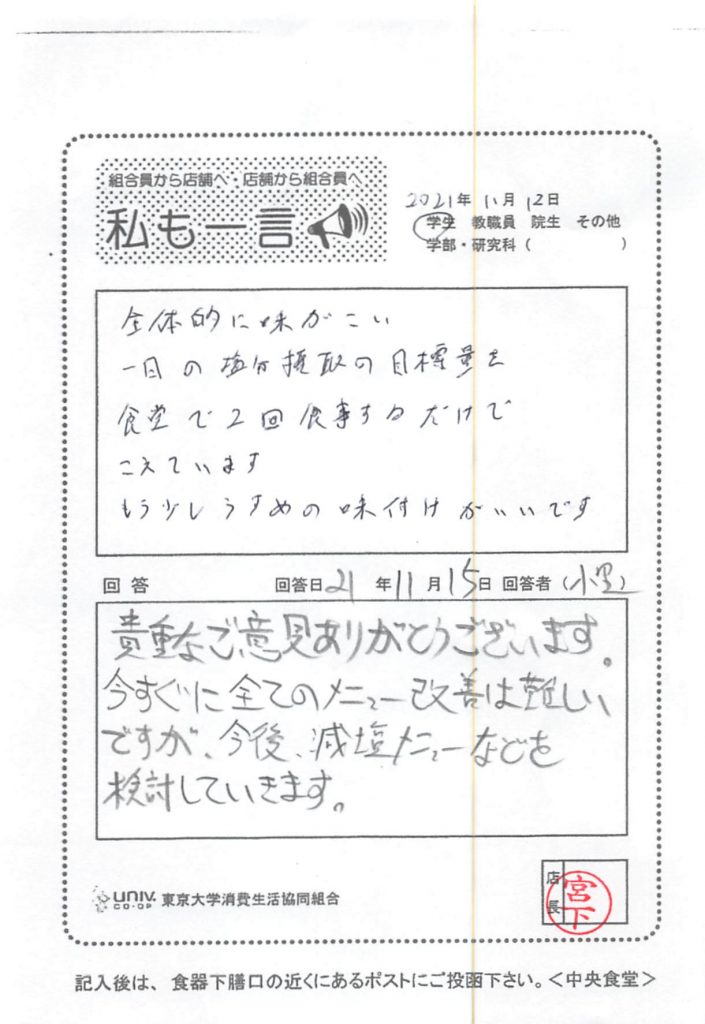 組合員から店舗へ・店舗から組合員へ
私も一言
2021年 11月 12日
学生 教職員 院生 その他
学部・研究科( )
全体的に味がこい
一日の塩分摂取の目標量を
食堂で2回食事するだけで
こえています
もう少しうすめの味付けがいいです
回答 回答日 21 年 11 月 15日 回答者(小里)
貴重なご意見ありがとうございます。
今すぐに全てのメニュー改善は難しい
ですが、今後、減塩メニューなどを
検討していきます。
UNIV. CO-OP 東京大学消費生活協同組合
店長 宮下
記入後は、食器下膳口の近くにあるポストにご投函下さい。<中央食堂>